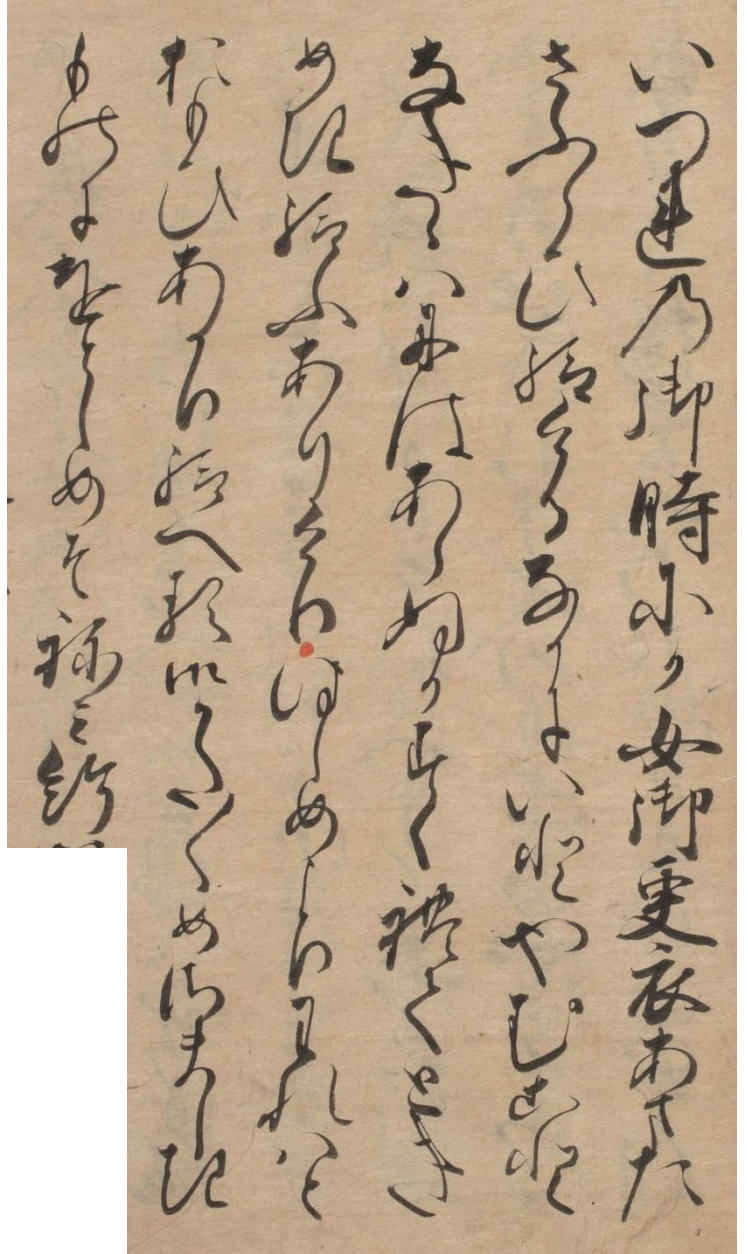 いつれの御時にか女御更衣あまた
さふらひ給けるなかにいとやむこと
なきゝはにはあらぬかすくれてとき
めき給ふありけりはしめよりわれはと
おもひあかり給へる御かた〱めさましき
ものにをとしめそねみ給